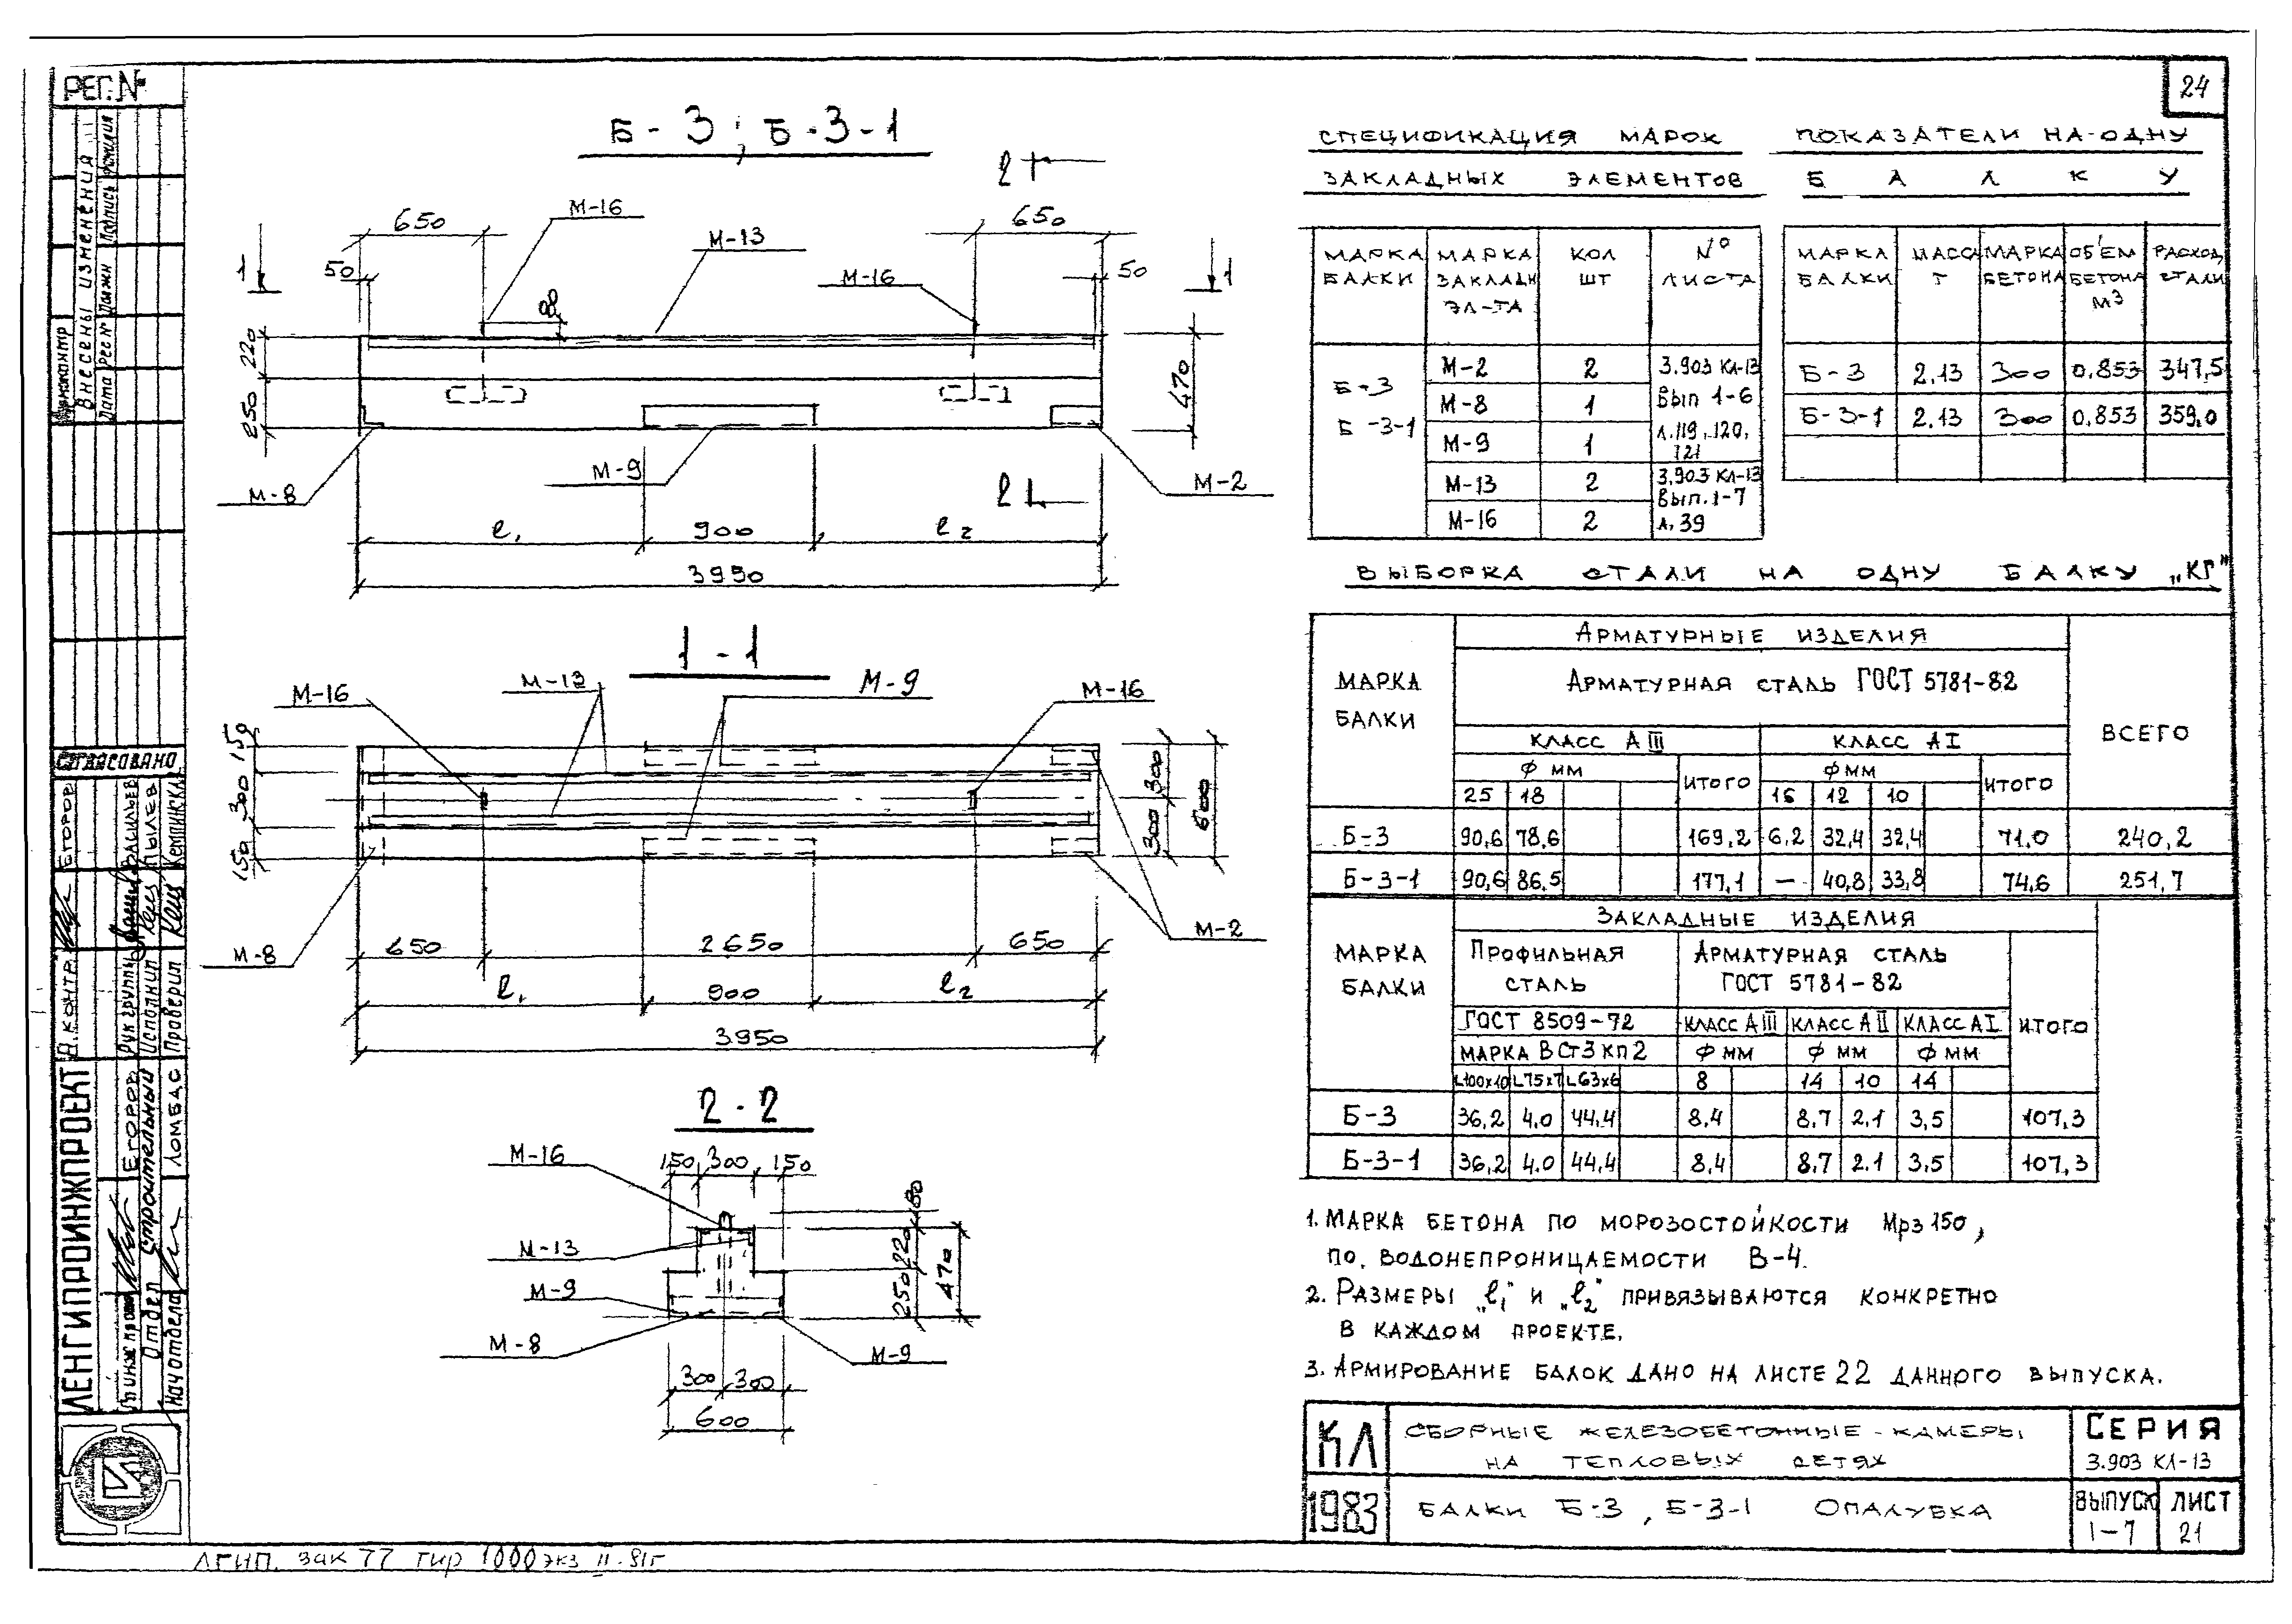 24
РЕГ. №
Внесены изменения
Дата Рег № Должн Подпись Фамилия
СОГЛАСОВАНО
ЛЕНГИПРОИНЖПРОЕКТ
Н. КОНТР. ЕГОРОВ
ЕГОРОВ
Рук группы Васильев
Отдел Строительный
Исполнил Пылев
Нач отдела ЛОМБАС
Проверил
Б-3; Б-3-1
2
650
М-16
М-13
650
1
50
М-16
50
1
80
220
250
470
М-8
М-9
2
М-2
l1
900
l2
3950
1-1
М-16
М-13
М-9
М-16
150
300
150
300
300
600
М-8
М-2
650
2650
650
l1
900
l2
3950
2-2
М-16
150 300 150
80
М-13
220
250
470
М-9
М-8
М-9
300 300
600
СПЕЦИФИКАЦИЯ МАРОК
ЗАКЛАДНЫХ ЭЛЕМЕНТОВ
МАРКА БАЛКИ
МАРКА ЗАКЛАДН ЭЛ-ТА
КОЛ ШТ
№ ЛИСТА
Б-3
Б-3-1
М-2 2 3.903 КЛ-13
М-8 1 Вып 1-6
М-9 1 л.119, 120, 121
М-13 2 3.903 КЛ-13 Вып. 1-7
М-16 2 л. 39
ПОКАЗАТЕЛИ НА ОДНУ
БАЛКУ
МАРКА БАЛКИ
МАССА Т
МАРКА БЕТОНА
ОБ'ЕМ БЕТОНА М3
РАСХОД СТАЛИ
Б-3 2.13 300 0.853 347,5
Б-3-1 2.13 300 0.853 359,0
ВЫБОРКА СТАЛИ НА ОДНУ БАЛКУ „КГ"
МАРКА БАЛКИ
АРМАТУРНЫЕ ИЗДЕЛИЯ
АРМАТУРНАЯ СТАЛЬ ГОСТ 5781-82
ВСЕГО
КЛАСС А III КЛАСС А I
Ф ММ ИТОГО Ф ММ ИТОГО
25 18 16 12 10
Б-3 90,6 78,6 169,2 6,2 32,4 32,4 71,0 240,2
Б-3-1 90,6 86,5 177,1 — 40,8 33,8 74,6 251,7
МАРКА БАЛКИ
ЗАКЛАДНЫЕ ИЗДЕЛИЯ
ПРОФИЛЬНАЯ СТАЛЬ
АРМАТУРНАЯ СТАЛЬ ГОСТ 5781-82
ИТОГО
ГОСТ 8509-72 КЛАСС А III КЛАСС А II КЛАСС А I
МАРКА В СТ3 КП2 Ф ММ Ф ММ Ф ММ
L100х10 L75х7 L63х6 8 14 10 14
Б-3 36,2 4,0 44,4 8,4 8,7 2,1 3,5 107,3
Б-3-1 36,2 4.0 44,4 8,4 8,7 2.1 3,5 107,3
1. МАРКА БЕТОНА ПО МОРОЗОСТОЙКОСТИ Мрз 150,
ПО ВОДОНЕПРОНИЦАЕМОСТИ В-4.
2. РАЗМЕРЫ „l1" И „l2" ПРИВЯЗЫВАЮТСЯ КОНКРЕТНО
В КАЖДОМ ПРОЕКТЕ.
3. АРМИРОВАНИЕ БАЛОК ДАНО НА ЛИСТЕ 22 ДАННОГО ВЫПУСКА.
КЛ
1983
СБОРНЫЕ ЖЕЛЕЗОБЕТОННЫЕ КАМЕРЫ
НА ТЕПЛОВЫХ СЕТЯХ
СЕРИЯ
3.903 КЛ-13
БАЛКИ Б-3, Б-3-1 ОПАЛУБКА
ВЫПУСК 1-7
ЛИСТ 21
ЛГИП. зак 77 тир 1000 экз II-81г